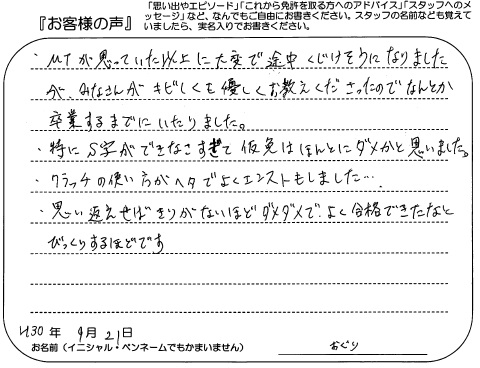 『お客様の声』
「思い出やエピソード」「これから免許を取る方へのアドバイス」「スタッフへのメッセージ」など、なんでもご自由にお書きください。スタッフの名前なども覚えていましたら、実名入りでお書きください。
・MTが思っていた以上に大変で途中くじけそうになりました
が みなさんがキビしくも優しくお教えくださったのでなんとか
卒業するまでにいたりました。
・特にS字ができなさすぎて仮免はほんとにダメかと思いました。
・クラッチの使い方がヘタでよくエンストもしました…
・思い返えせばきりがないほどダメダメで、よく合格できたなと
びっくりするほどです
H30年 9月21日
お名前(イニシャル・ペンネームでもかまいません) おぐり